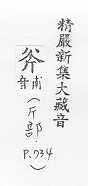 精嚴新集大藏音
斧
音甫
(斤部,
P.734